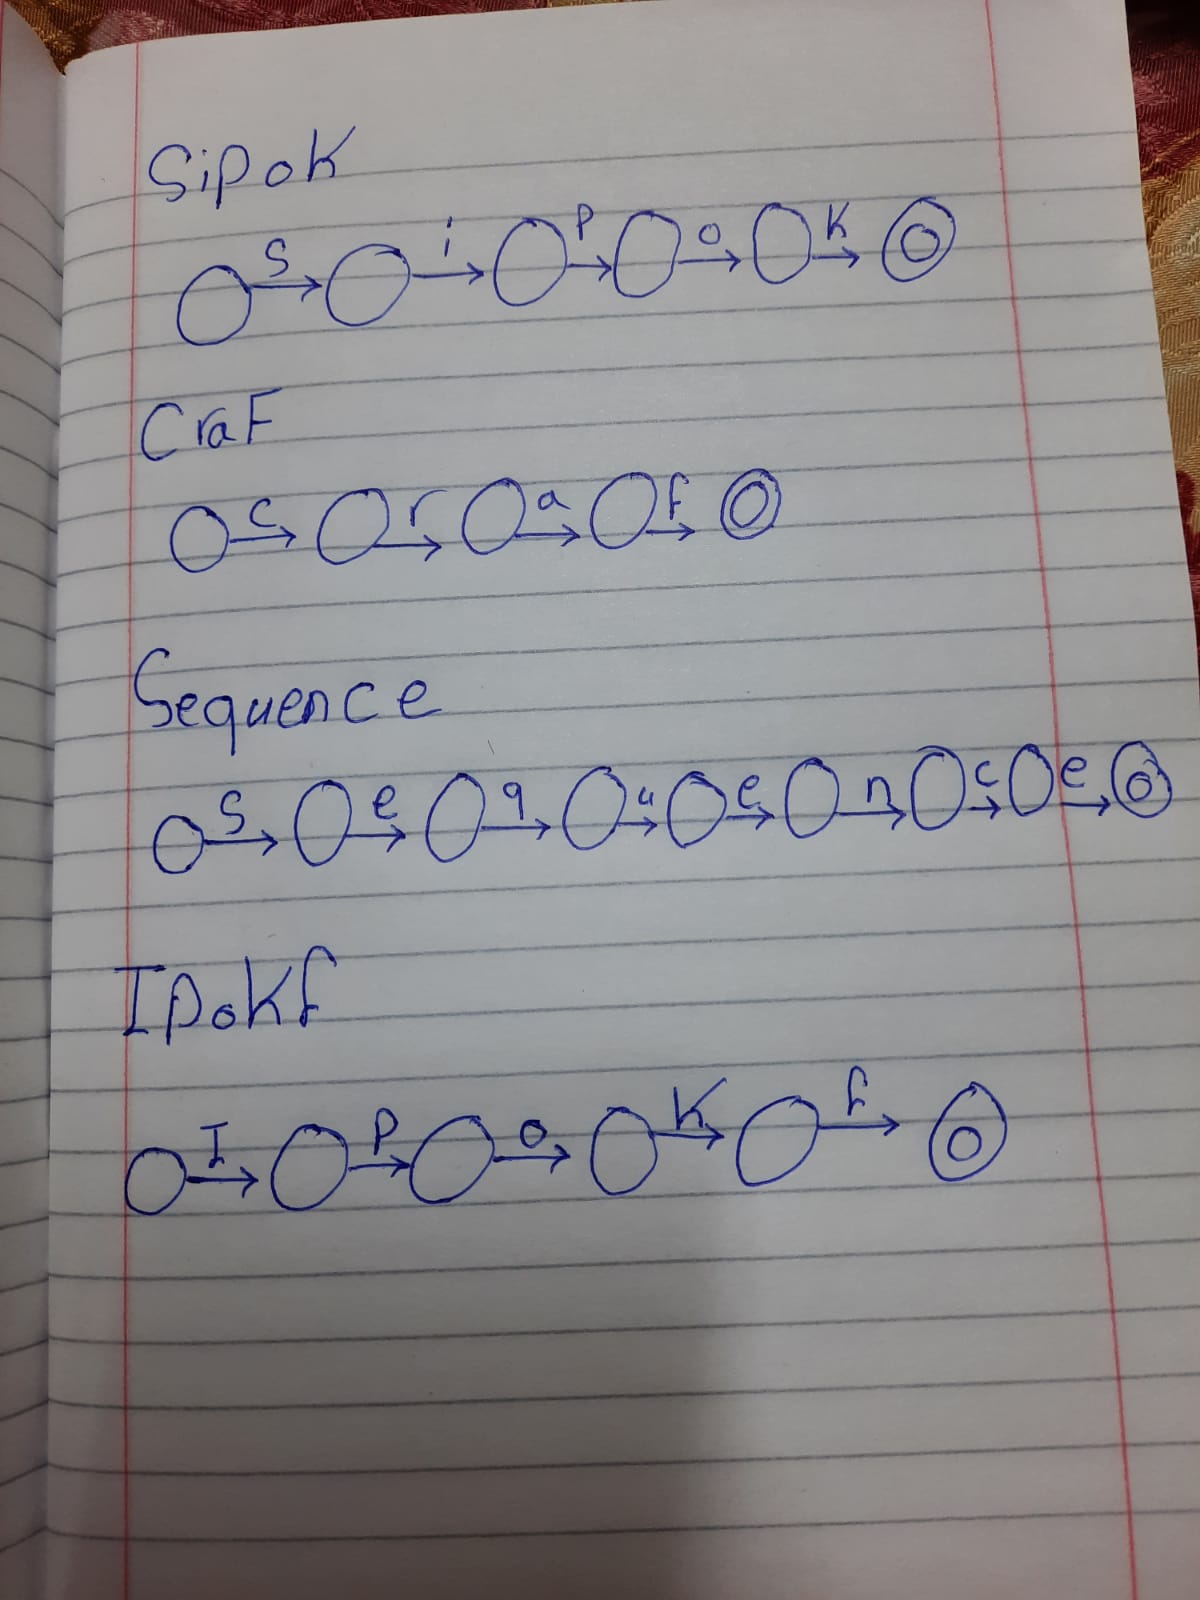 Sipok
S i P o K
CraF
c r a f
Sequence
S e q u e n c e
Ipokf
I P o K f